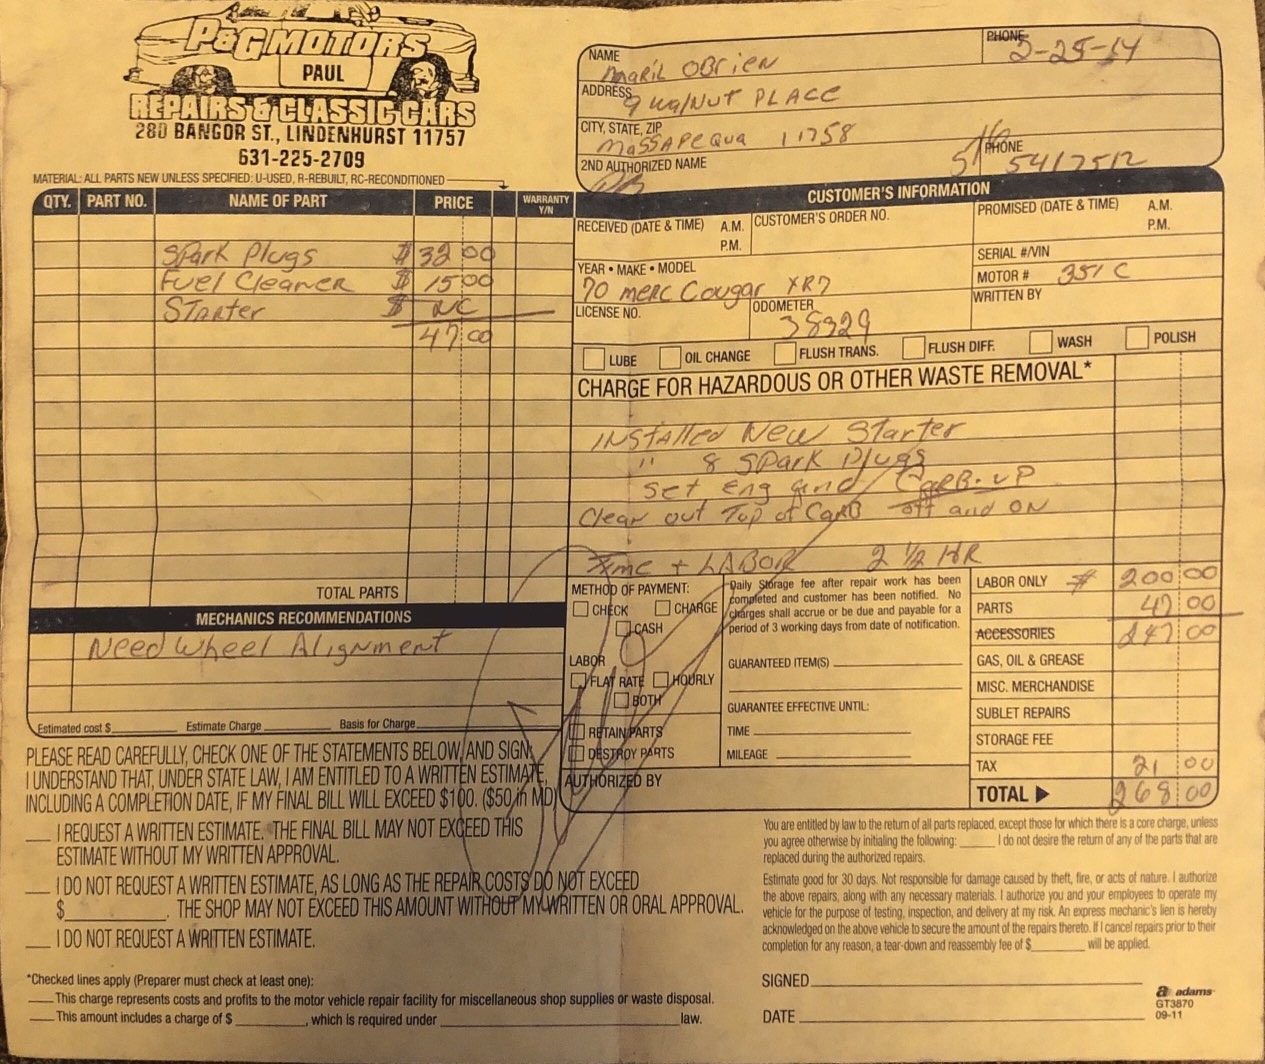 P&G MOTORS
PAUL
REPAIRS & CLASSIC CARS
280 BANGOR ST., LINDENHURST 11757
631-225-2709
MATERIAL: ALL PARTS NEW UNLESS SPECIFIED: U-USED, R-REBUILT, RC-RECONDITIONED
NAME OBrien
PHONE 2-25-14
ADDRESS 9 walNUT PLACE
CITY, STATE, ZIP MASSAPEQUA 11758
2ND AUTHORIZED NAME
PHONE 516 5417512
CUSTOMER'S INFORMATION
QTY. PART NO. NAME OF PART PRICE WARRANTY Y/N
Spark Plugs $ 32 00
Fuel Cleaner $ 15 00
STARTER $ NC
47 00
TOTAL PARTS
RECEIVED (DATE & TIME) A.M. P.M.
CUSTOMER'S ORDER NO.
PROMISED (DATE & TIME) A.M. P.M.
YEAR • MAKE • MODEL 70 merc Cougar XR7
SERIAL #/VIN
MOTOR # 351 C
LICENSE NO.
ODOMETER 38329
WRITTEN BY
LUBE OIL CHANGE FLUSH TRANS. FLUSH DIFF. WASH POLISH
CHARGE FOR HAZARDOUS OR OTHER WASTE REMOVAL*
INStalled New Starter
" 8 SPark Plugs
Set eng and CARB. UP
Clean out Top of CARB off and ON
Time + LABOR 2 1/2 HR
MECHANICS RECOMMENDATIONS
Need Wheel Alignment
Estimated cost $ Estimate Charge Basis for Charge
METHOD OF PAYMENT:
CHECK CHARGE
CASH
LABOR
FLAT RATE HOURLY
BOTH
RETAIN PARTS
DESTROY PARTS
AUTHORIZED BY
Daily Storage fee after repair work has been
completed and customer has been notified. No
charges shall accrue or be due and payable for a
period of 3 working days from date of notification.
GUARANTEED ITEM(S)
GUARANTEE EFFECTIVE UNTIL:
TIME
MILEAGE
LABOR ONLY $ 200 00
PARTS 47 00
ACCESSORIES 247 00
GAS, OIL & GREASE
MISC. MERCHANDISE
SUBLET REPAIRS
STORAGE FEE
TAX 21 00
TOTAL 268 00
PLEASE READ CAREFULLY, CHECK ONE OF THE STATEMENTS BELOW, AND SIGN:
I UNDERSTAND THAT, UNDER STATE LAW, I AM ENTITLED TO A WRITTEN ESTIMATE,
INCLUDING A COMPLETION DATE, IF MY FINAL BILL WILL EXCEED $100. ($50 in MD)
I REQUEST A WRITTEN ESTIMATE. THE FINAL BILL MAY NOT EXCEED THIS
ESTIMATE WITHOUT MY WRITTEN APPROVAL.
I DO NOT REQUEST A WRITTEN ESTIMATE, AS LONG AS THE REPAIR COSTS DO NOT EXCEED
$ . THE SHOP MAY NOT EXCEED THIS AMOUNT WITHOUT MY WRITTEN OR ORAL APPROVAL.
I DO NOT REQUEST A WRITTEN ESTIMATE.
*Checked lines apply (Preparer must check at least one):
This charge represents costs and profits to the motor vehicle repair facility for miscellaneous shop supplies or waste disposal.
This amount includes a charge of $ , which is required under law.
You are entitled by law to the return of all parts replaced, except those for which there is a core charge, unless
you agree otherwise by initialing the following: I do not desire the return of any of the parts that are
replaced during the authorized repairs.
Estimate good for 30 days. Not responsible for damage caused by theft, fire, or acts of nature. I authorize
the above repairs, along with any necessary materials. I authorize you and your employees to operate my
vehicle for the purpose of testing, inspection, and delivery at my risk. An express mechanic's lien is hereby
acknowledged on the above vehicle to secure the amount of the repairs thereto. If I cancel repairs prior to their
completion for any reason, a tear-down and reassembly fee of $ will be applied.
SIGNED
DATE
adams
GT3870
09-11